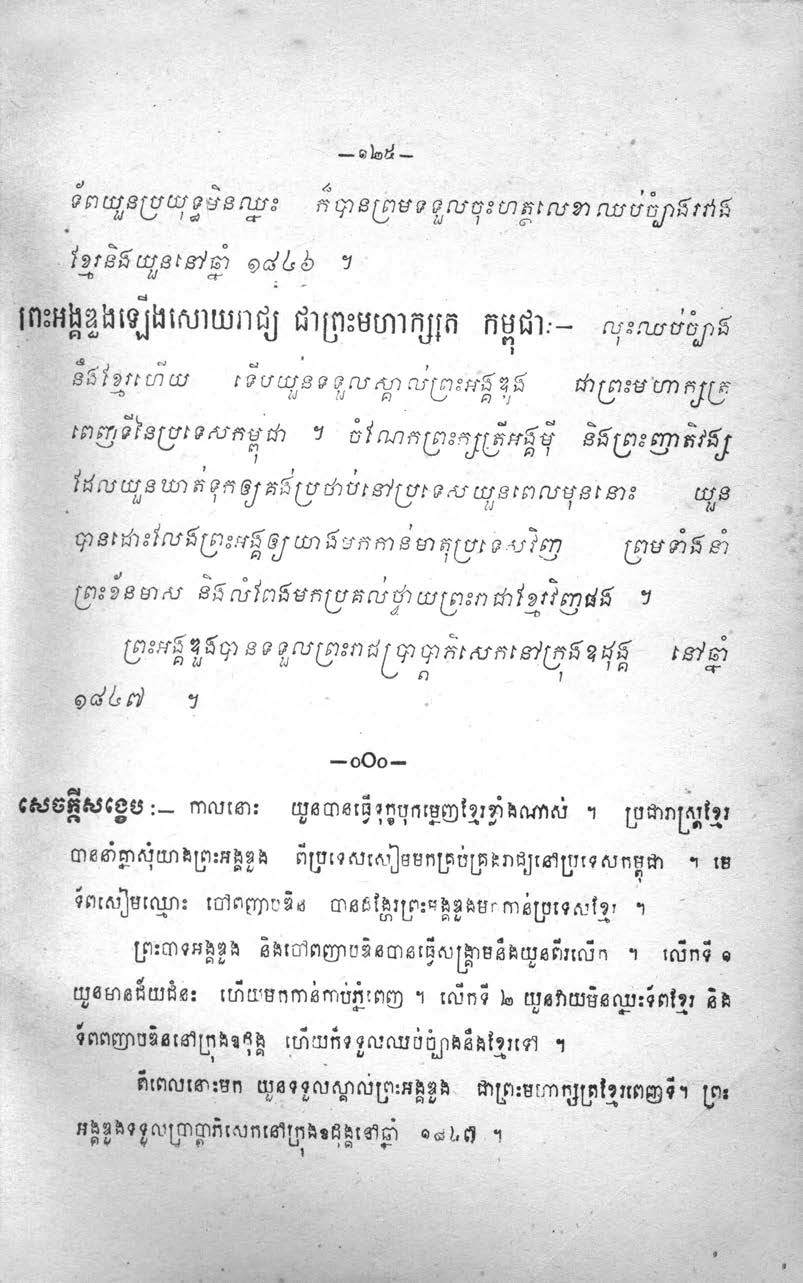 —១២៥—
ទ័ពយួនប្រយុទ្ធមិនឈ្នះ ក៏បានព្រមទទួលចុះហត្ថលេខាឈប់ច្បាំងរវាង
ខ្មែរនិងយួននៅឆ្នាំ ១៨៤៦ ។
ព្រះអង្គឌួងឡើងសោយរាជ្យ ជាព្រះមហាក្សត្រ កម្ពុជាៈ— លុះឈប់ច្បាំង
នឹងខ្មែរហើយ ទើបយួនទទួលស្គាល់ព្រះអង្គឌួង ជាព្រះមហាក្សត្រ
ពេញទីនៃប្រទេសកម្ពុជា ។ ចំណែកព្រះក្សត្រីអង្គម៉ី និងព្រះញាតិវង្ស
ដែលយួនឃាត់ទុកឲ្យគង់ប្រថាប់នៅប្រទេសយួនពេលមុននោះ យួន
បានដោះលែងព្រះអង្គឲ្យយាងមកកាន់មាតុប្រទេសវិញ ព្រមទាំងនាំ
ព្រះខ័នមាស និងលំពែងមកប្រគល់ថ្វាយព្រះរាជាខ្មែរវិញផង ។
ព្រះអង្គឌួងបានទទួលព្រះរាជប្រាប្តាភិសេកនៅក្រុងឧដុង្គ នៅឆ្នាំ
១៨៤៧ ។
—oOo—
សេចក្តីសង្ខេប :— កាលនោះ យួនបានធ្វើទុក្ខបុកម្នេញខ្មែរខ្លាំងណាស់ ។ ប្រជារាស្ត្រខ្មែរ
បាននាំគ្នាសុំយាងព្រះអង្គឌួង ពីប្រទេសសៀមមកគ្រប់គ្រងរាជ្យនៅប្រទេសកម្ពុជា ។ មេ
ទ័ពសៀមឈ្មោះ ចៅពញាបឌិន បានដង្ហែរព្រះអង្គឌួងមកកាន់ប្រទេសខ្មែរ ។
ព្រះបាទអង្គឌួង និងចៅពញាបឌិនបានធ្វើសង្គ្រាមនឹងយួនពីរលើក ។ លើកទី ១
យួនមានជ័យជំនះ ហើយមកកាន់កាប់ភ្នំពេញ ។ លើកទី ២ យួនវាយមិនឈ្នះទ័ពខ្មែរ និង
ទ័ពពញាបឌិននៅក្រុងឧដុង្គ ហើយក៏ទទួលឈប់ច្បាំងនឹងខ្មែរទៅ ។
ពីពេលនោះមក យួនទទួលស្គាល់ព្រះអង្គឌួង ជាព្រះមហាក្សត្រខ្មែរពេញទី។ ព្រះ
អង្គឌួងទទួលប្រាប្តាភិសេកនៅក្រុងឧដុង្គនៅឆ្នាំ ១៨៤៧ ។